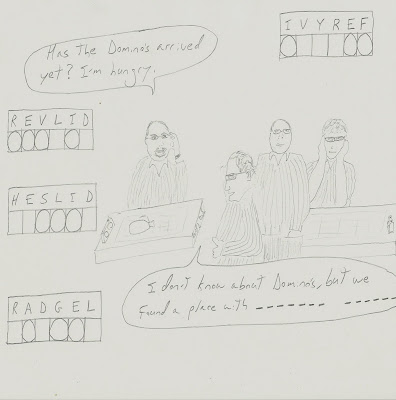 Has the Domino's arrived
yet? I'm hungry.
IVYREF
REVLID
HESLID
RADGEL
I don't know about Domino's, but we
found a place with